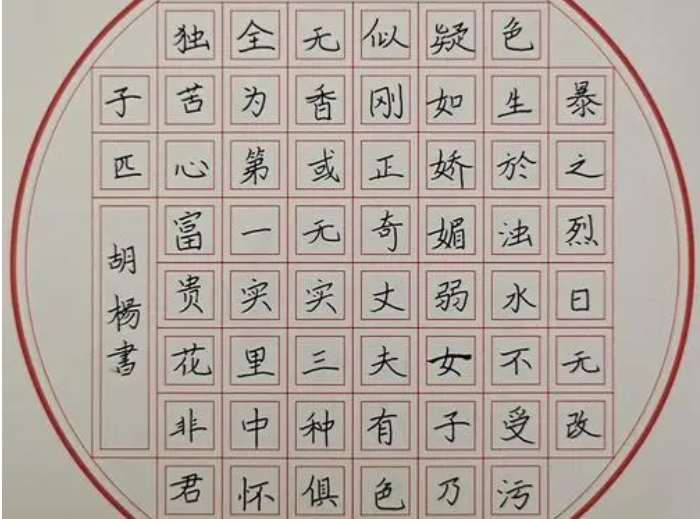 暴之烈日无改
色生於浊水不受污
疑如娇媚弱女子乃
似刚正奇丈夫有色
无香或无实三种俱
全为第一实里中怀
独苦心富贵花非君
子匹
胡楊書